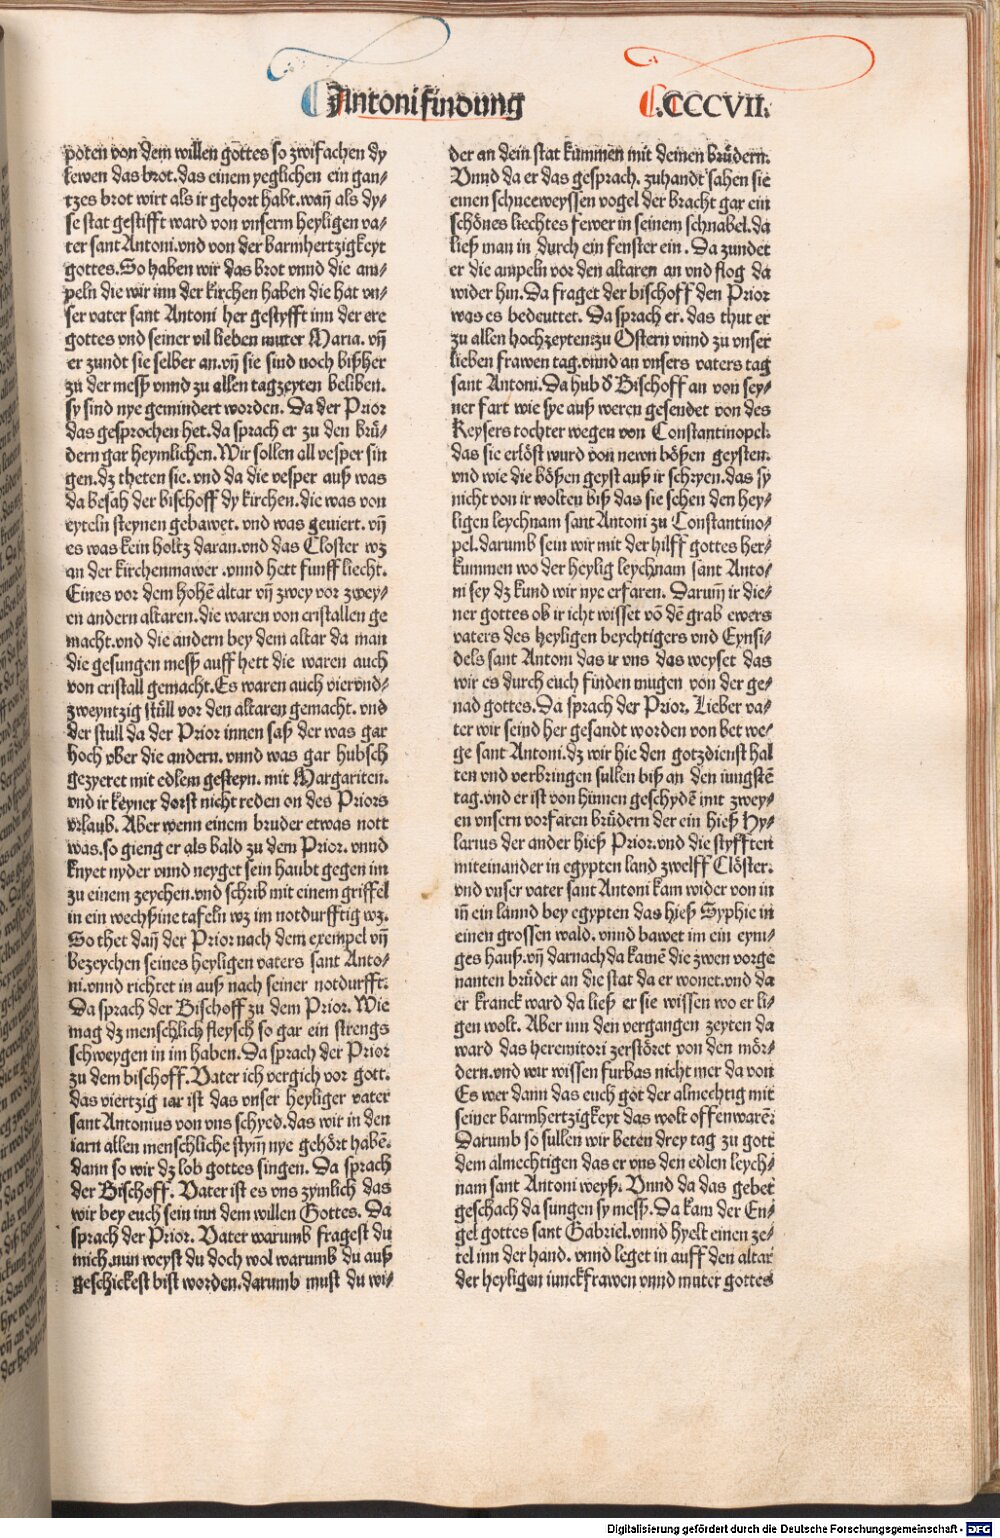 Antoni findung .CCCVII.
poten von dem willen gottes so zwifachen dy
lewen das brot. das einem yeglichen ein gan/
tzes brot wirt als ir gehort habt. wañ als dy/
se stat gestifft ward von vnserm heyligen va/
ter sant Antoni. vnd von der barmhertzigkeyt
gottes. So haben wir das brot vnnd die am/
peln die wir inn der kirchen haben die hat vn/
ser vater sant Antoni her gestyfft inn der ere
gottes vnd seiner vil lieben muter Maria. vñ
er zundt sie selber an. vñ sie sind noch bißher
zu der meß vnnd zu allen tagzeyten beliben.
sy sind nye gemindert worden. Da der Prior
das gesprochen het. da sprach er zu den brü/
dern gar heymlichen. Wir sollen all vesper sin
gen. dz theten sie. vnd da die vesper auß was
da besah der bischoff dy kirchen. die was von
eyteln steynen gebawet. vnd was geuiert. vñ
es was kein holtz daran. vnd das Closter wz
an der kirchenmawer. vnnd hett funff liecht.
Eines vor dem hohē altar vñ zwey vor zwey/
en andern altaren. die waren von cristallen ge
macht. vnd die andern bey dem altar da man
die gesungen meß auff hett die waren auch
von cristall gemacht. Es waren auch vierund/
zweyntzig stüll vor den altaren gemacht. vnd
der stull da der Prior innen saß der was gar
hoch vber die andern. vnnd was gar hubsch
gezyeret mit edlem gesteyn. mit Margariten.
vnd ir keyner dorst nicht reden on des Priors
vrlaub. Aber wenn einem bruder etwas nott
was. so gieng er als bald zu dem Prior. vnnd
knyet nyder vnnd neyget sein haubt gegen im
zu einem zeychen. vnd schrib mit einem griffel
in ein wechßine tafeln wz im notdurfftig wz.
So thet dañ der Prior nach dem exempel vñ
bezeychen seines heyligen vaters sant Anto/
ni. vnnd richtet in auß nach seiner notdurfft.
Da sprach der Bischoff zu dem Prior. Wie
mag dz menschlich fleysch so gar ein strengs
schweygen in im haben. Da sprach der Prior
zu dem bischoff. Vater ich vergich vor gott.
das viertzig iar ist das vnser heyliger vater
sant Antonius von vns schyed. das wir in den
iarn allen menschliche stym̄ nye gehört habē.
dann so wir dz lob gottes singen. Da sprach
der Bischoff. Vater ist es vns zymlich das
wir bey euch sein inn dem willen Gottes. Da
sprach der Prior. Vater warumb fragest du
mich. nun weyst du doch wol warumb du auß
geschickest bist worden. darumb must du wi/
der an dein stat kummen mit deinen brüdern.
Vnnd da er das gesprach. zuhandt sahen sie
einen schneeweyssen vogel der bracht gar ein
schönes liechtes fewer in seinem schnabel. da
ließ man in durch ein fenster ein. Da zundet
er die ampeln vor den altaren an vnd flog da
wider hin. Da fraget der bischoff den Prior
was es bedeuttet. Da sprach er. das thut er
zu allen hochzeyten: zu Ostern vnnd zu vnser
lieben frawen tag. vnnd an vnsers vaters tag
sant Antoni. Da hub d̕ Bischoff an von sey/
ner fart wie sye auß weren gesendet von des
Keysers tochter wegen von Constantinopel.
das sie erlöst wurd von newn bößen geysten.
vnd wie die bößen geyst auß ir schryen. das sy
nicht von ir wolten biß das sie sehen den hey/
ligen leychnam sant Antoni zu Constantino/
pel. darumb sein wir mit der hilff gottes her/
kummen wo der heylig leychnam sant Anto/
ni sey dz kund wir nye erfaren. Darum̄ ir die/
ner gottes ob ir icht wisset vō dē grab ewers
vaters des heyligen beychtigers vnd Eynsi/
dels sant Antoni das ir vns das weyset das
wir es durch euch finden mugen von der ge/
nad gottes. Da sprach der Prior. Lieber va/
ter wir seind her gesandt worden von bet we/
ge sant Antoni. dz wir hie den gotzdienst hal
ten vnd verbringen sullen biß an den iungstē
tag. vnd er ist von hinnen geschydē mit zwey/
en vnsern vorfaren brüdern der ein hieß Hy/
larius der ander hieß Prior. vnd die styfften
miteinander in egypten land zwelff Clöster.
vnd vnser vater sant Antoni kam wider von in
iñ ein lannd bey egypten das hieß Syphie in
einen grossen wald. vnnd bawet im ein eyni/
ges hauß. vñ darnach da kamē die zwen vorge
nanten brüder an die stat da er wonet. vnd da
er kranck ward da ließ er sie wissen wo er li/
gen wolt. Aber inn den vergangen zeyten da
ward das heremitori zerstöret von den mör/
dern. vnd wir wissen furbas nicht mer da von
Es wer dann das euch got der almechtig mit
seiner barmhertzigkeyt das wolt offenwarē.
Darumb so sullen wir beten drey tag zu gott
dem almechtigen das er vns den edlen leych/
nam sant Antoni weyß. Vnnd da das gebet
geschach da sungen sy meß. Da kam der En/
gel gottes sant Gabriel. vnnd hyelt einen ze/
tel inn der hand. vnnd leget in auff den altar
der heyligen iunckfrawen vnnd muter gottes
Digitalisierung gefördert durch die Deutsche Forschungsgemeinschaft - DFG